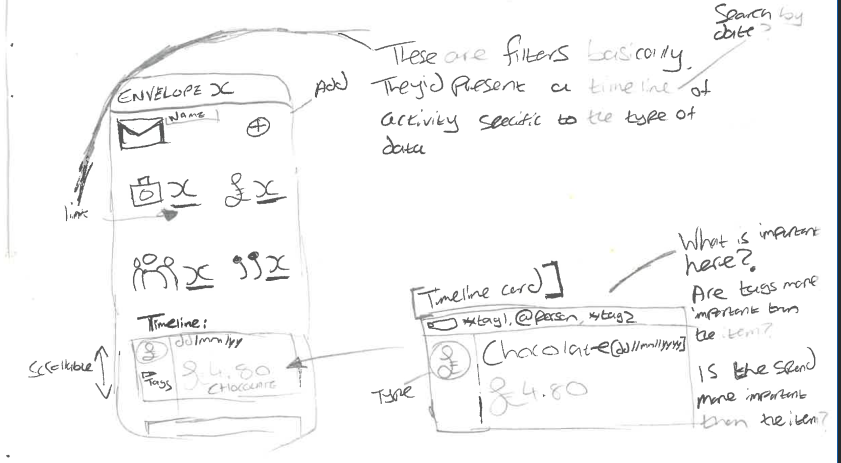 Search by
date?
These are filters basically.
They'd present a timeline of
activity specific to the type of
data
Add
ENVELOPE X
Name
X
£ X
link
X
X
Timeline:
£
dd/mm/yy
Tags
£4.80
CHOCOLATE
Scrollable
Timeline card]
*tag1, @person, *tag2
£
Chocolate [dd/mm/yyyy]
£4.80
Type
What is important
here?
Are tags more
important than
the item?
Is the spend
more important
than the item?